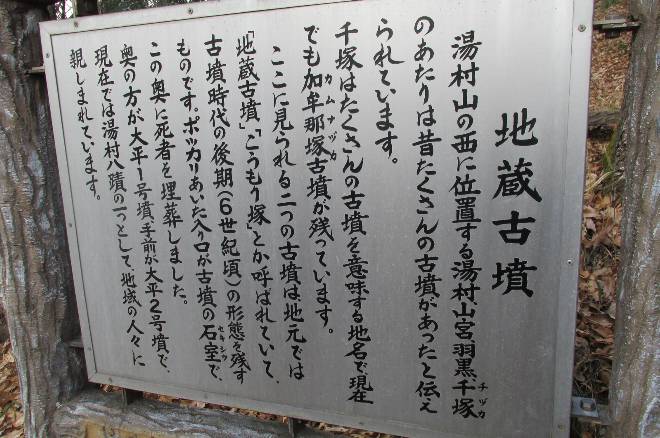 地蔵古墳
湯村山の西に位置する湯村山宮、羽黒、千塚
チヅカ
のあたりは昔たくさんの古墳があったと伝え
られています。
千塚はたくさんの古墳を意味する地名で現在
でも加牟那塚古墳が残っています。
カムナヅカ
ここに見られる二つの古墳は地元では
「地蔵古墳」「こうもり塚」とか呼ばれていて、
古墳時代の後期(6世紀頃)の形態を残す
ものです。ポッカリあいた入り口が古墳の石室で、
セキシツ
この奥に死者を埋葬しました。
奥の方が大平1号墳、手前が大平2号墳で、
現在では湯村八蹟の一つとして、地域の人々に
親しまれています。